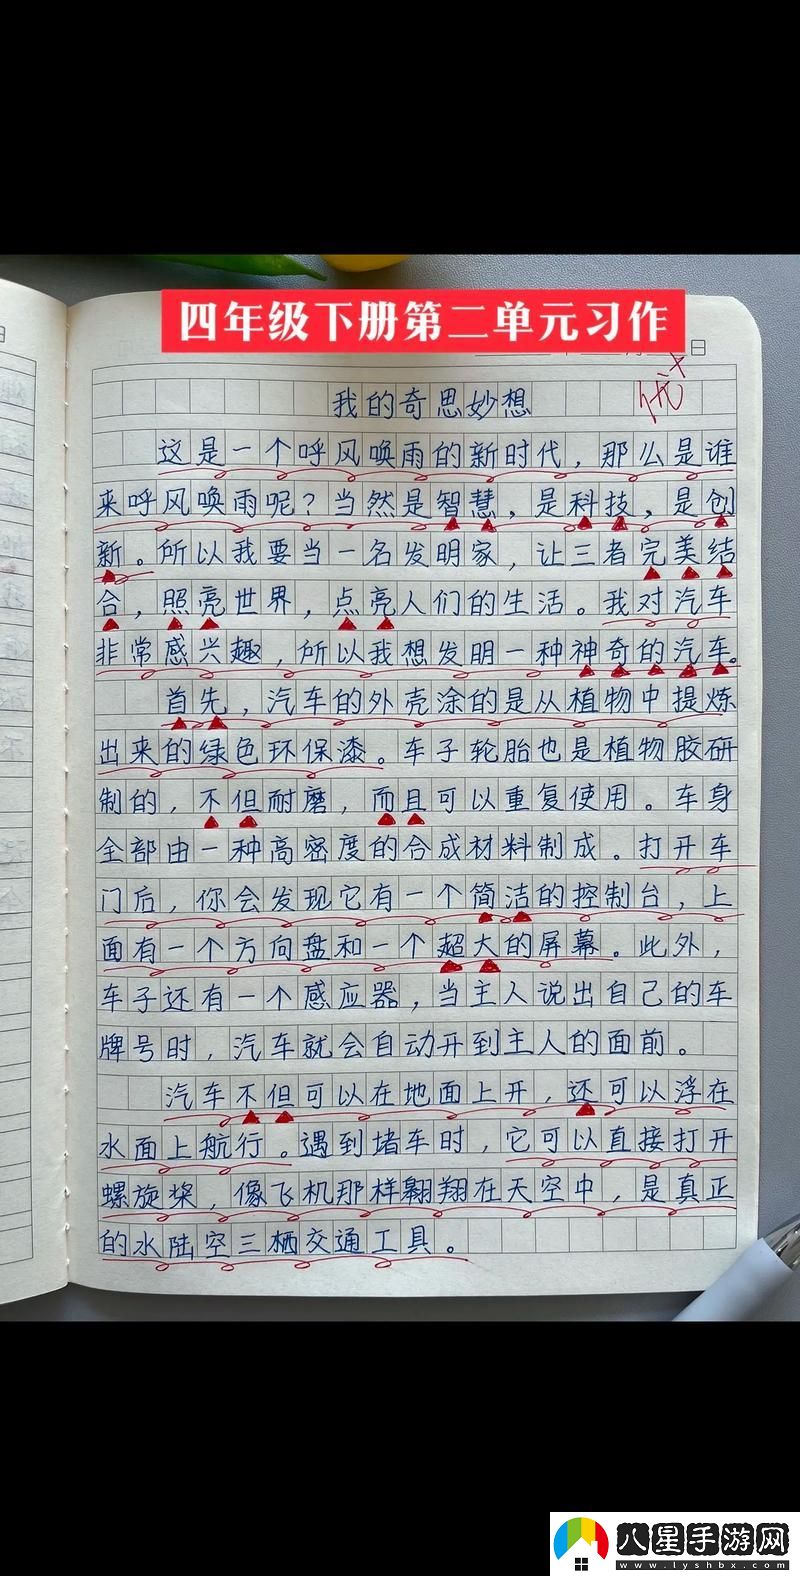 四年级下册第二单元习作
日
优+
我的奇思妙想
这是一个呼风唤雨的新时代，那么是谁
来呼风唤雨呢？当然是智慧，是科技，是创
新。所以我要当一名发明家，让三者完美结
合，照亮世界，点亮人们的生活。我对汽车
非常感兴趣，所以我想发明一种神奇的汽车。
首先，汽车的外壳涂的是从植物中提炼
出来的绿色环保漆。车子轮胎也是植物胶研
制的，不但耐磨，而且可以重复使用。车身
全部由一种高密度的合成材料制成。打开车
门后，你会发现它有一个简洁的控制台，上
面有一个方向盘和一个超大的屏幕。此外，
车子还有一个感应器，当主人说出自己的车
牌号时，汽车就会自动开到主人的面前。
汽车不但可以在地面上开，还可以浮在
水面上航行。遇到堵车时，它可以直接打开
螺旋桨，像飞机那样翱翔在天空中，是真正
的水陆空三栖交通工具。
八星手游网
www.lyshbx.com